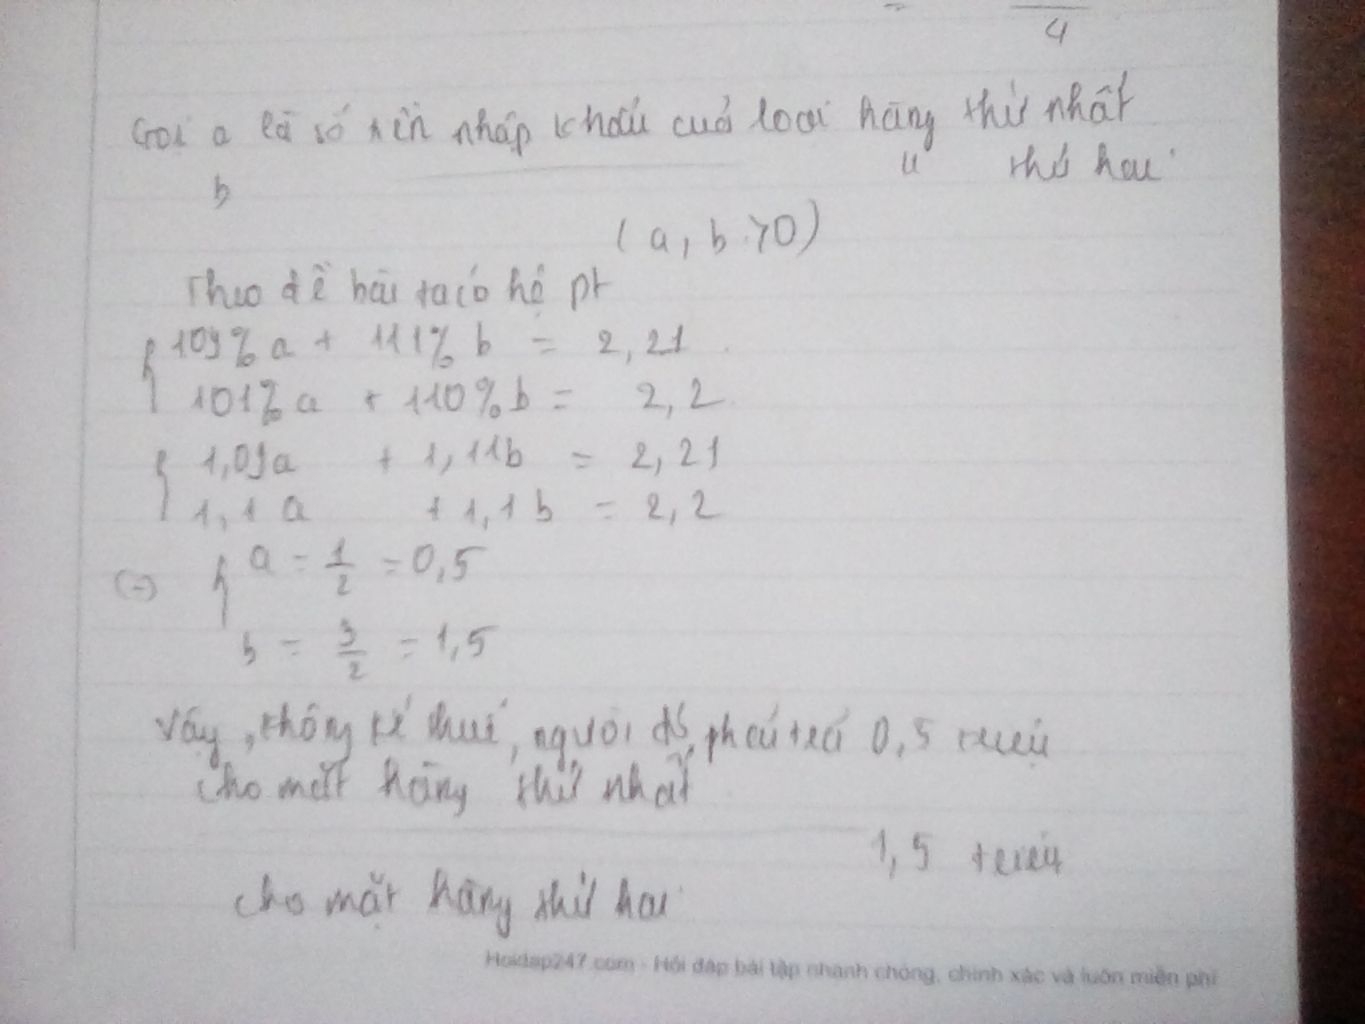 4
Gọi a là số tiền nhập khẩu của loại hàng thứ nhất
b " thứ hai
(a, b >0)
Theo đề bài ta có hệ pt
109% a + 111% b = 2,21
101% a + 110% b = 2,2
1,09a + 1,11b = 2,21
1,1a + 1,1b = 2,2
(-) a = 1/2 = 0,5
b = 3/2 = 1,5
Vậy, không kể thuế, người đó phải trả 0,5 triệu
cho mặt hàng thứ nhất
1,5 triệu
cho mặt hàng thứ hai
Hoidap247.com - Hỏi đáp bài tập nhanh chóng, chính xác và luôn miễn phí